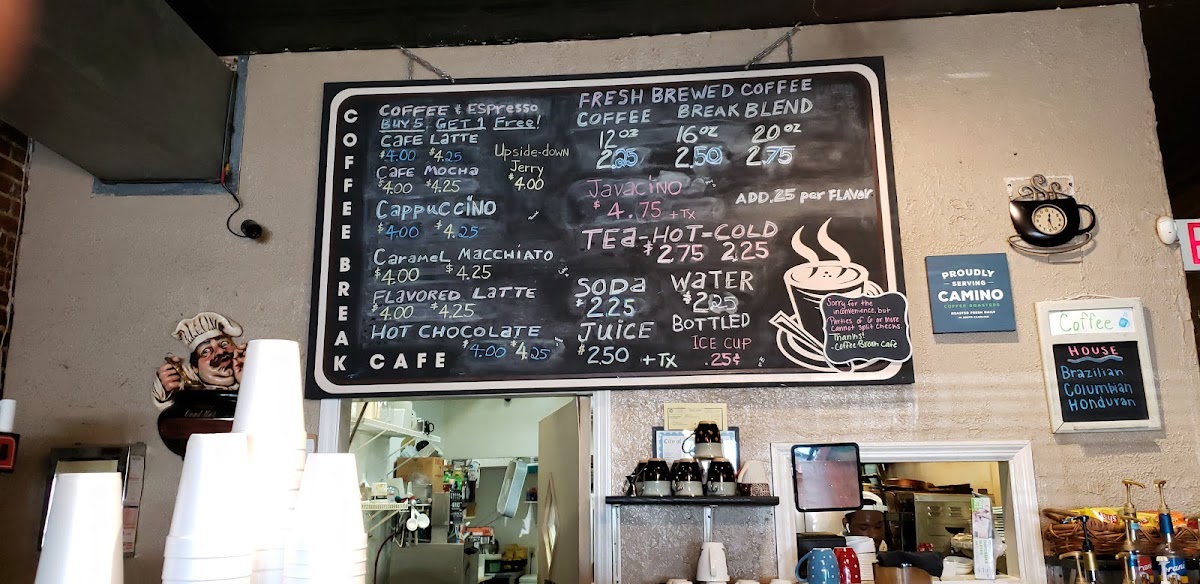 COFFEE BREAK CAFE
COFFEE & ESPRESSO
BUY 5 GET 1 Free!
CAFE LATTE
$4.00 $4.25
CAFE MOCHA
$4.00 $4.25
Upside-down
Jerry
$4.00
CAPPUCCINO
$4.00 $4.25
CARAMEL MACCHIATO
$4.00 $4.25
FLAVORED LATTE
$4.00 $4.25
HOT CHOCOLATE
$4.00 $4.25
FRESH BREWED COFFEE
COFFEE BREAK BLEND
12 oz 16 oz 20 oz
2.25 2.50 2.75
Javacino
$4.75 + TX
ADD .25 per FLAVOR
TEA-HOT-COLD
$2.75 2.25
SODA
$2.25
WATER
BOTTLED
JUICE
$2.50 + TX
ICE CUP
.25¢
Sorry for the
inconvenience, but
Parties of 6 or more
Cannot split checks
Thanks!
-Coffee Break Cafe
PROUDLY
SERVING
CAMINO
COFFEE ROASTERS
Coffee
HOUSE
Brazilian
Columbian
Honduran